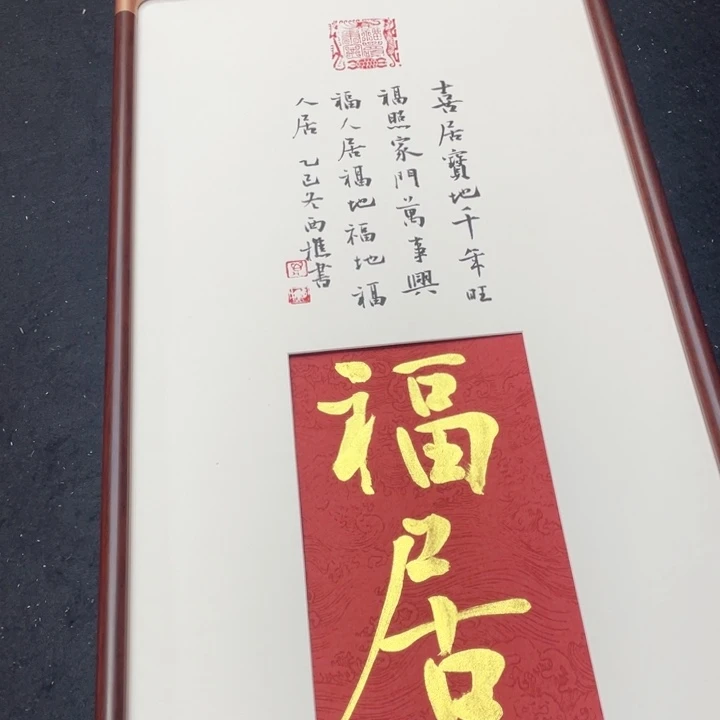 喜居寶地千年旺
福照家門萬事興
福人居福地福地福
人居 乙巳冬西樵書
福居